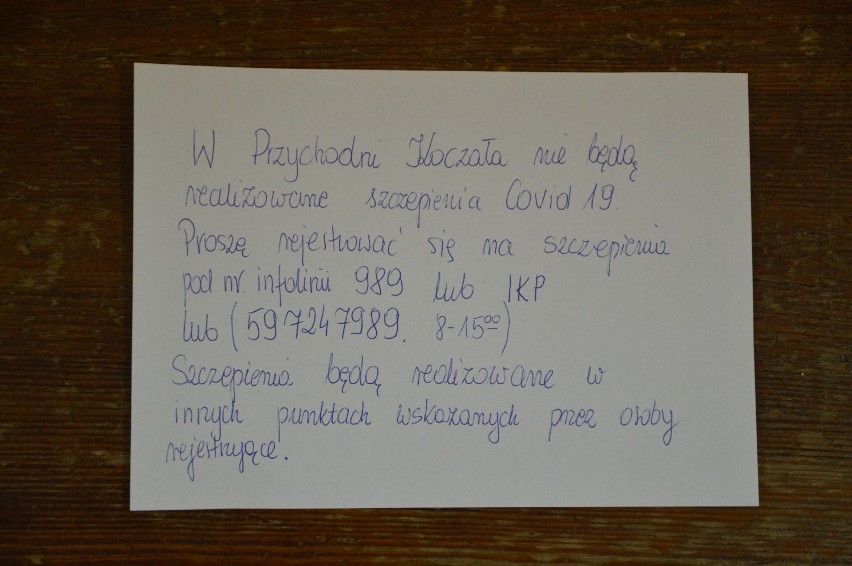 W Przychodni Koczała nie będą
realizowane szczepienia Covid 19.
Proszę rejestrować się na szczepienia
pod nr. infolinii 989 lub IKP
lub (597247989. 8-15⁰⁰)
Szczepienia będą realizowane w
innych punktach wskazanych przez osoby
rejestrujące.